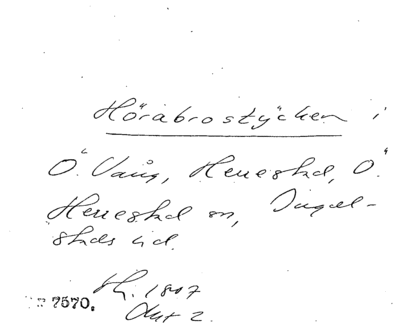 Hörabrostycken i
Ö. Vång, Herrestad, Ö.
Herrestad sn, Ingel-
stads hd.
1807
Akt 2.
7570.